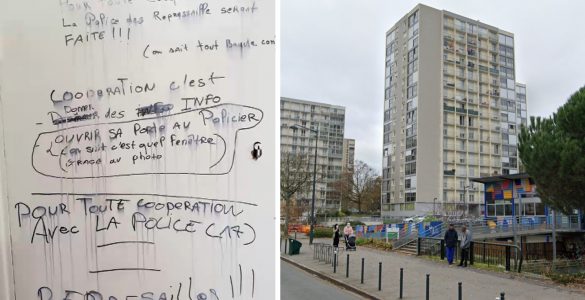 POUR TOUTE COO
LA POLICE DES REPRESAILLE SERONT
FAITE!!!
(on sait tout
COOPERATION c'est
Donner des INFO
OUVRIR SA PORTE AU POLICIER
(on sait c'est quel fenêtre
GRACE au photo)
POUR TOUTE COOPERATION
AVEC LA POLICE (17)
REPRESAILLES!!!